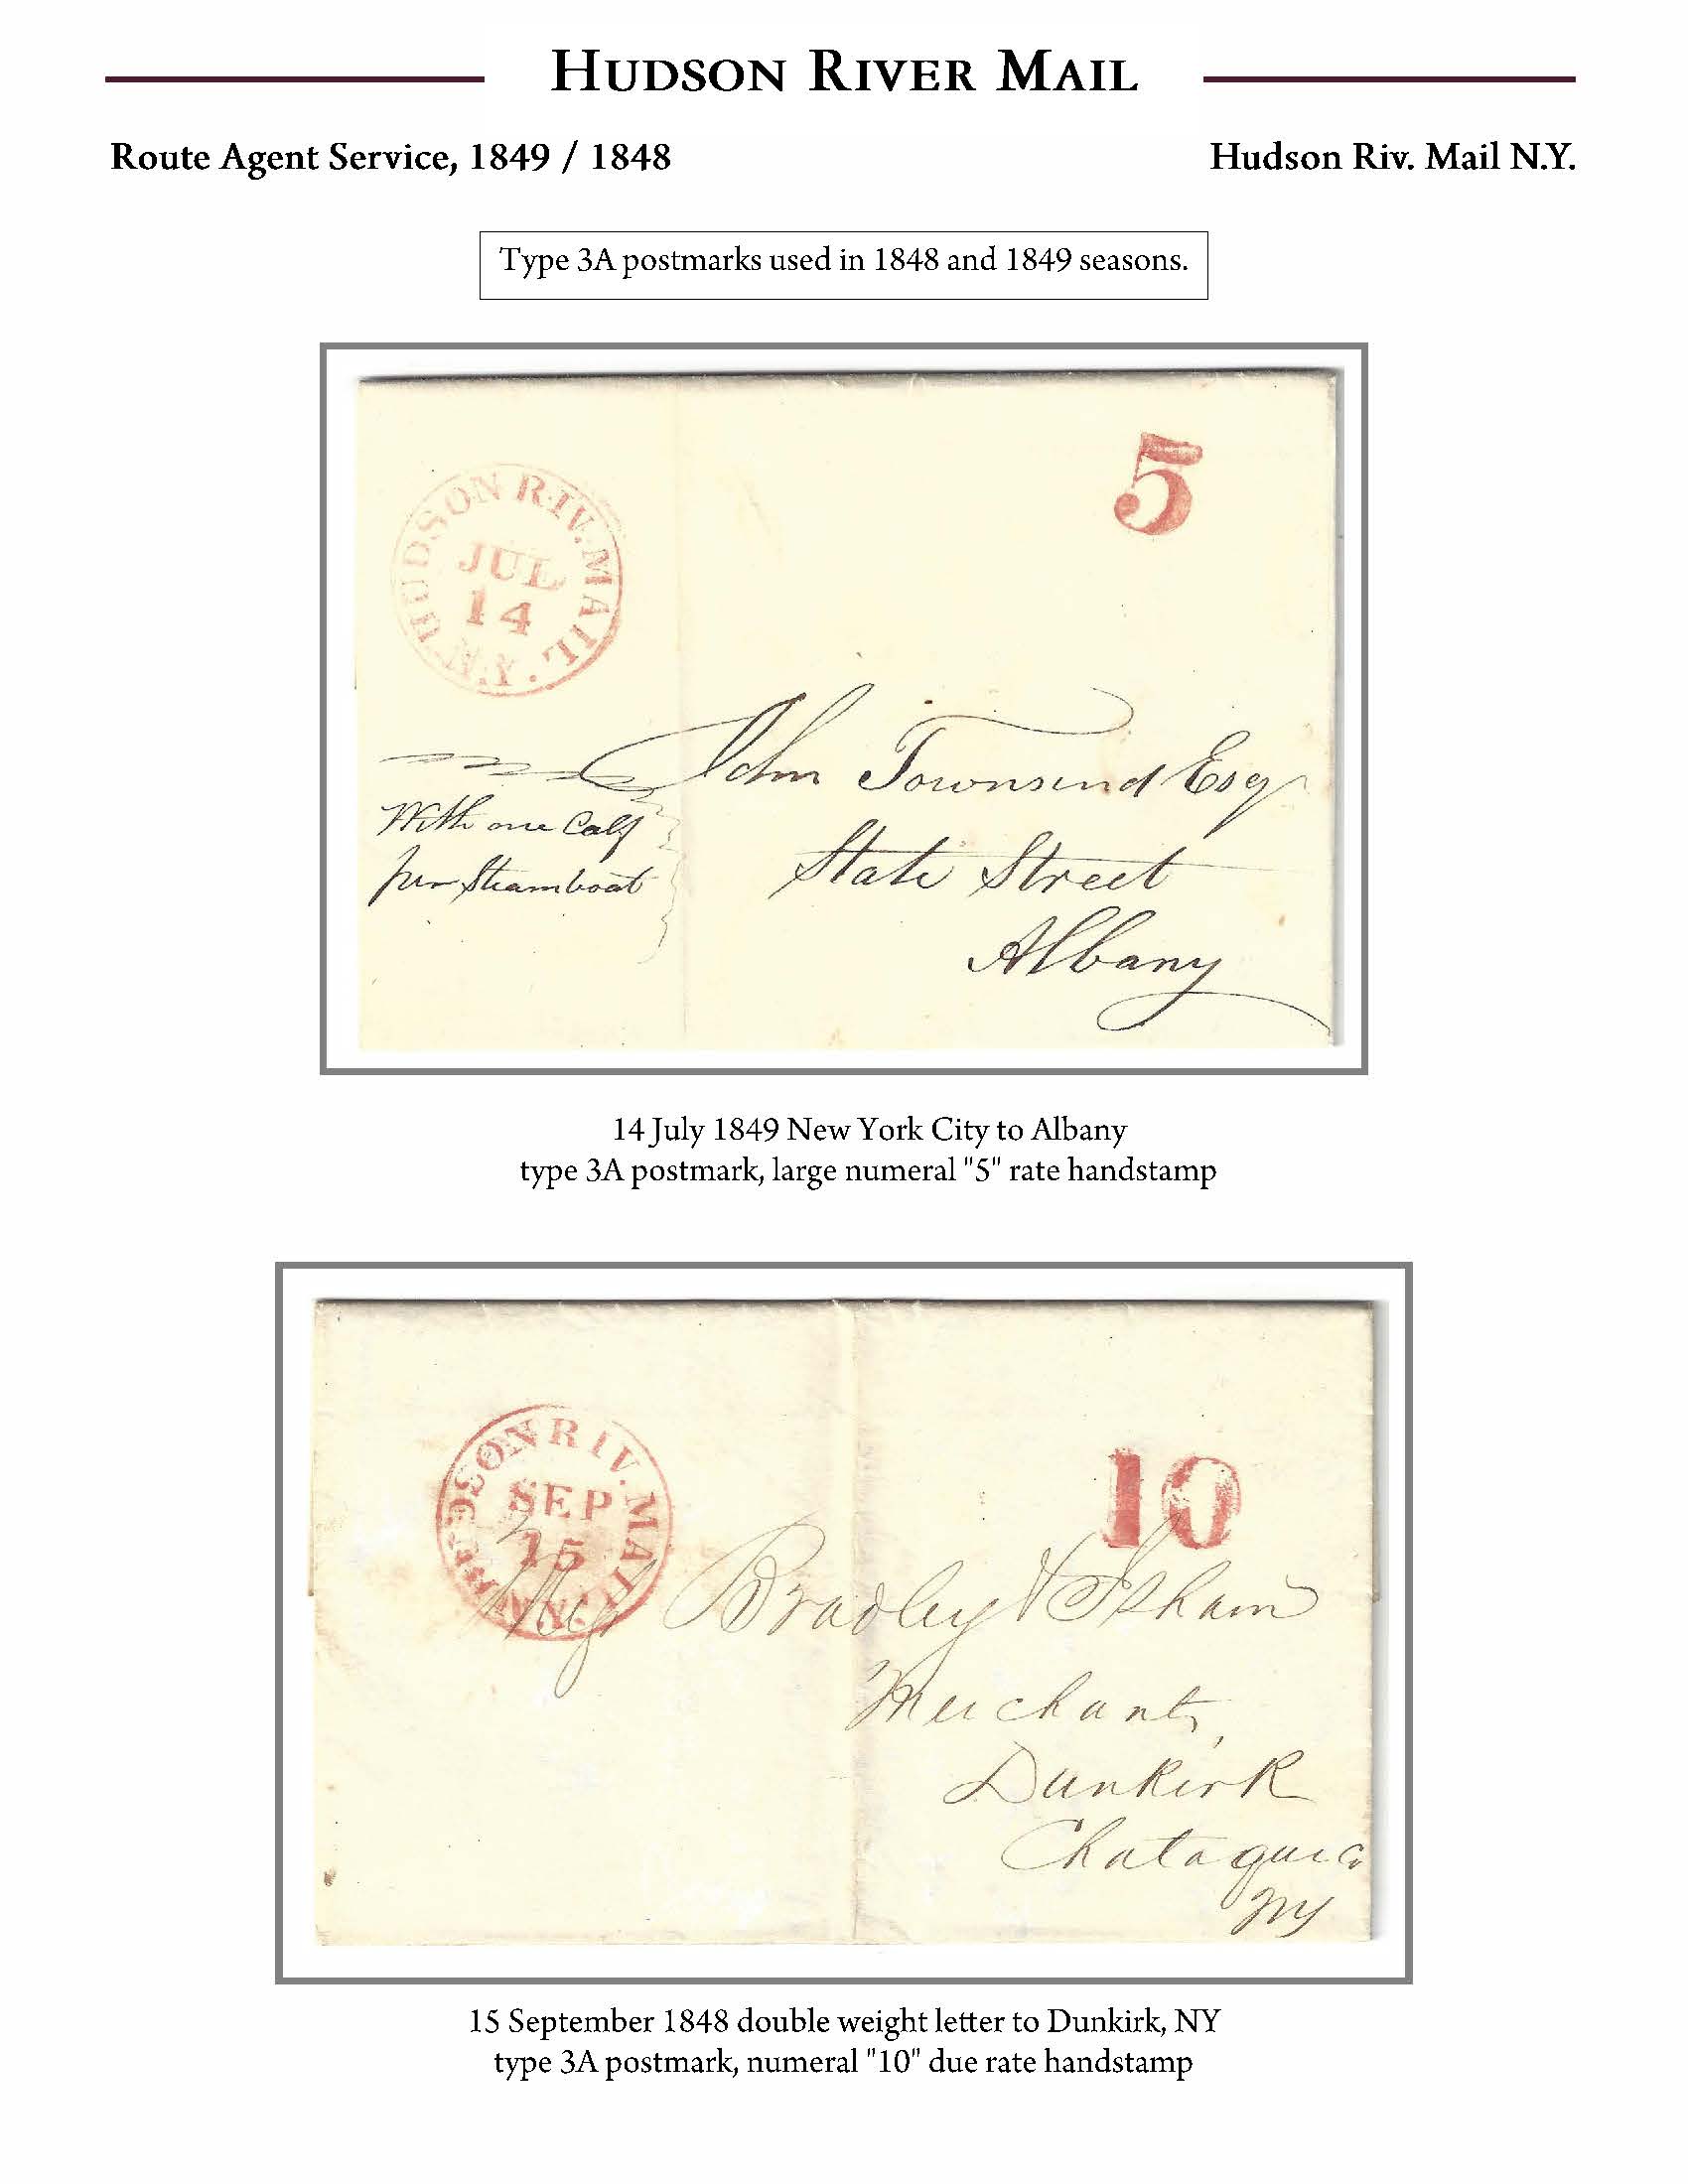 HUDSON RIVER MAIL
Route Agent Service, 1849 / 1848
Hudson Riv. Mail N.Y.
Type 3A postmarks used in 1848 and 1849 seasons.
HUDSON RIV. MAIL
JUL
14
N.Y.
5
John Townsend Esqr
With one Calf
per Steamboat
State Street
Albany
14 July 1849 New York City to Albany
type 3A postmark, large numeral "5" rate handstamp
HUDSON RIV. MAIL
SEP
15
N.Y.
10
Bradley & Isham
Merchants,
Dunkirk
Chatauque Co
NY
15 September 1848 double weight letter to Dunkirk, NY
type 3A postmark, numeral "10" due rate handstamp